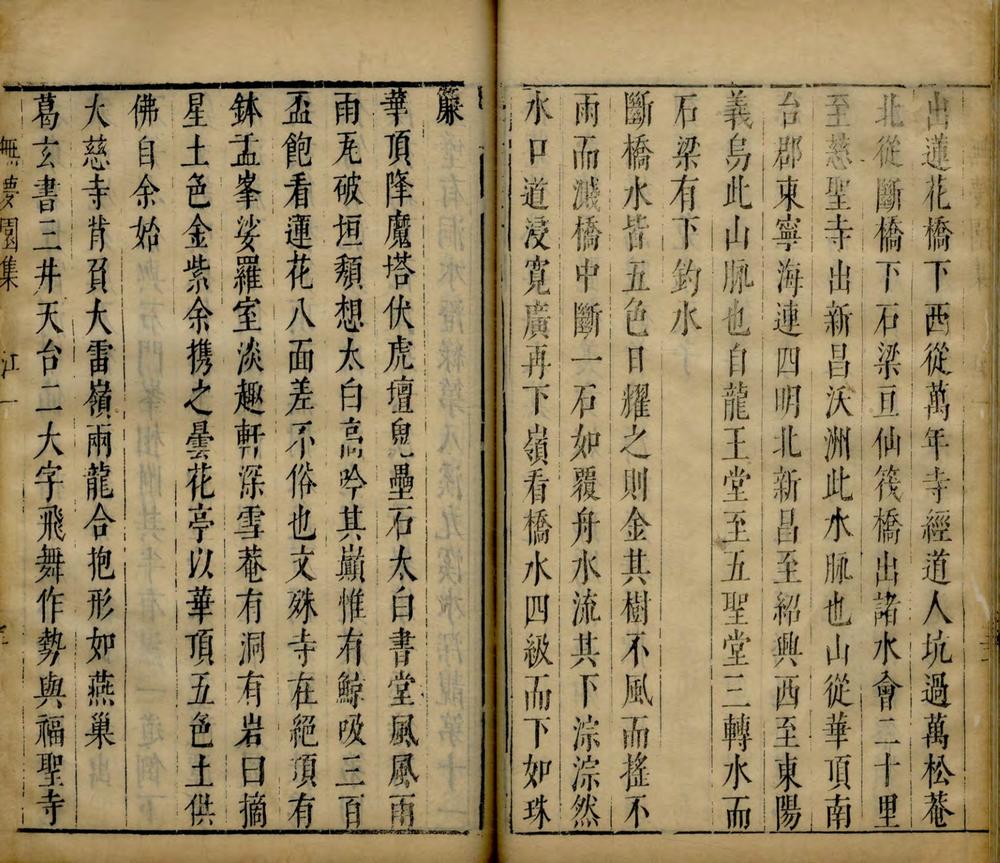 出蓮花橋下西從萬年寺經道人坑過萬松菴
北從斷橋下石梁亘仙筏橋出諸水會二十里
至慈聖寺出新昌沃洲此水脈也山從華頂南
台郡東寧海連四明北新昌至紹興西至東陽
義烏此山脈也自龍王堂至五聖堂三轉水而
石梁有下釣水
斷橋水皆五色日耀之則金其樹不風而搖不
雨而濺橋中斷一石如覆舟水流其下淙淙然
水口道浸寬廣再下嶺看橋水四級而下如珠
簾
華頂降魔塔伏虎壇皃壘石太白書堂風風雨
雨瓦破垣頹想太白高吟其巔惟有鯨吸三百
盃飽看蓮花八面差不俗也文殊寺在絕頂有
鉢盂峯娑羅室淡趣軒深雪菴有洞有岩曰摘
星土色金紫余携之曇花亭以華頂五色土供
佛自余始
大慈寺背負大雷嶺兩龍合抱形如燕巢
葛玄書三井天台二大字飛舞作勢與福聖寺
無夢園集 江一